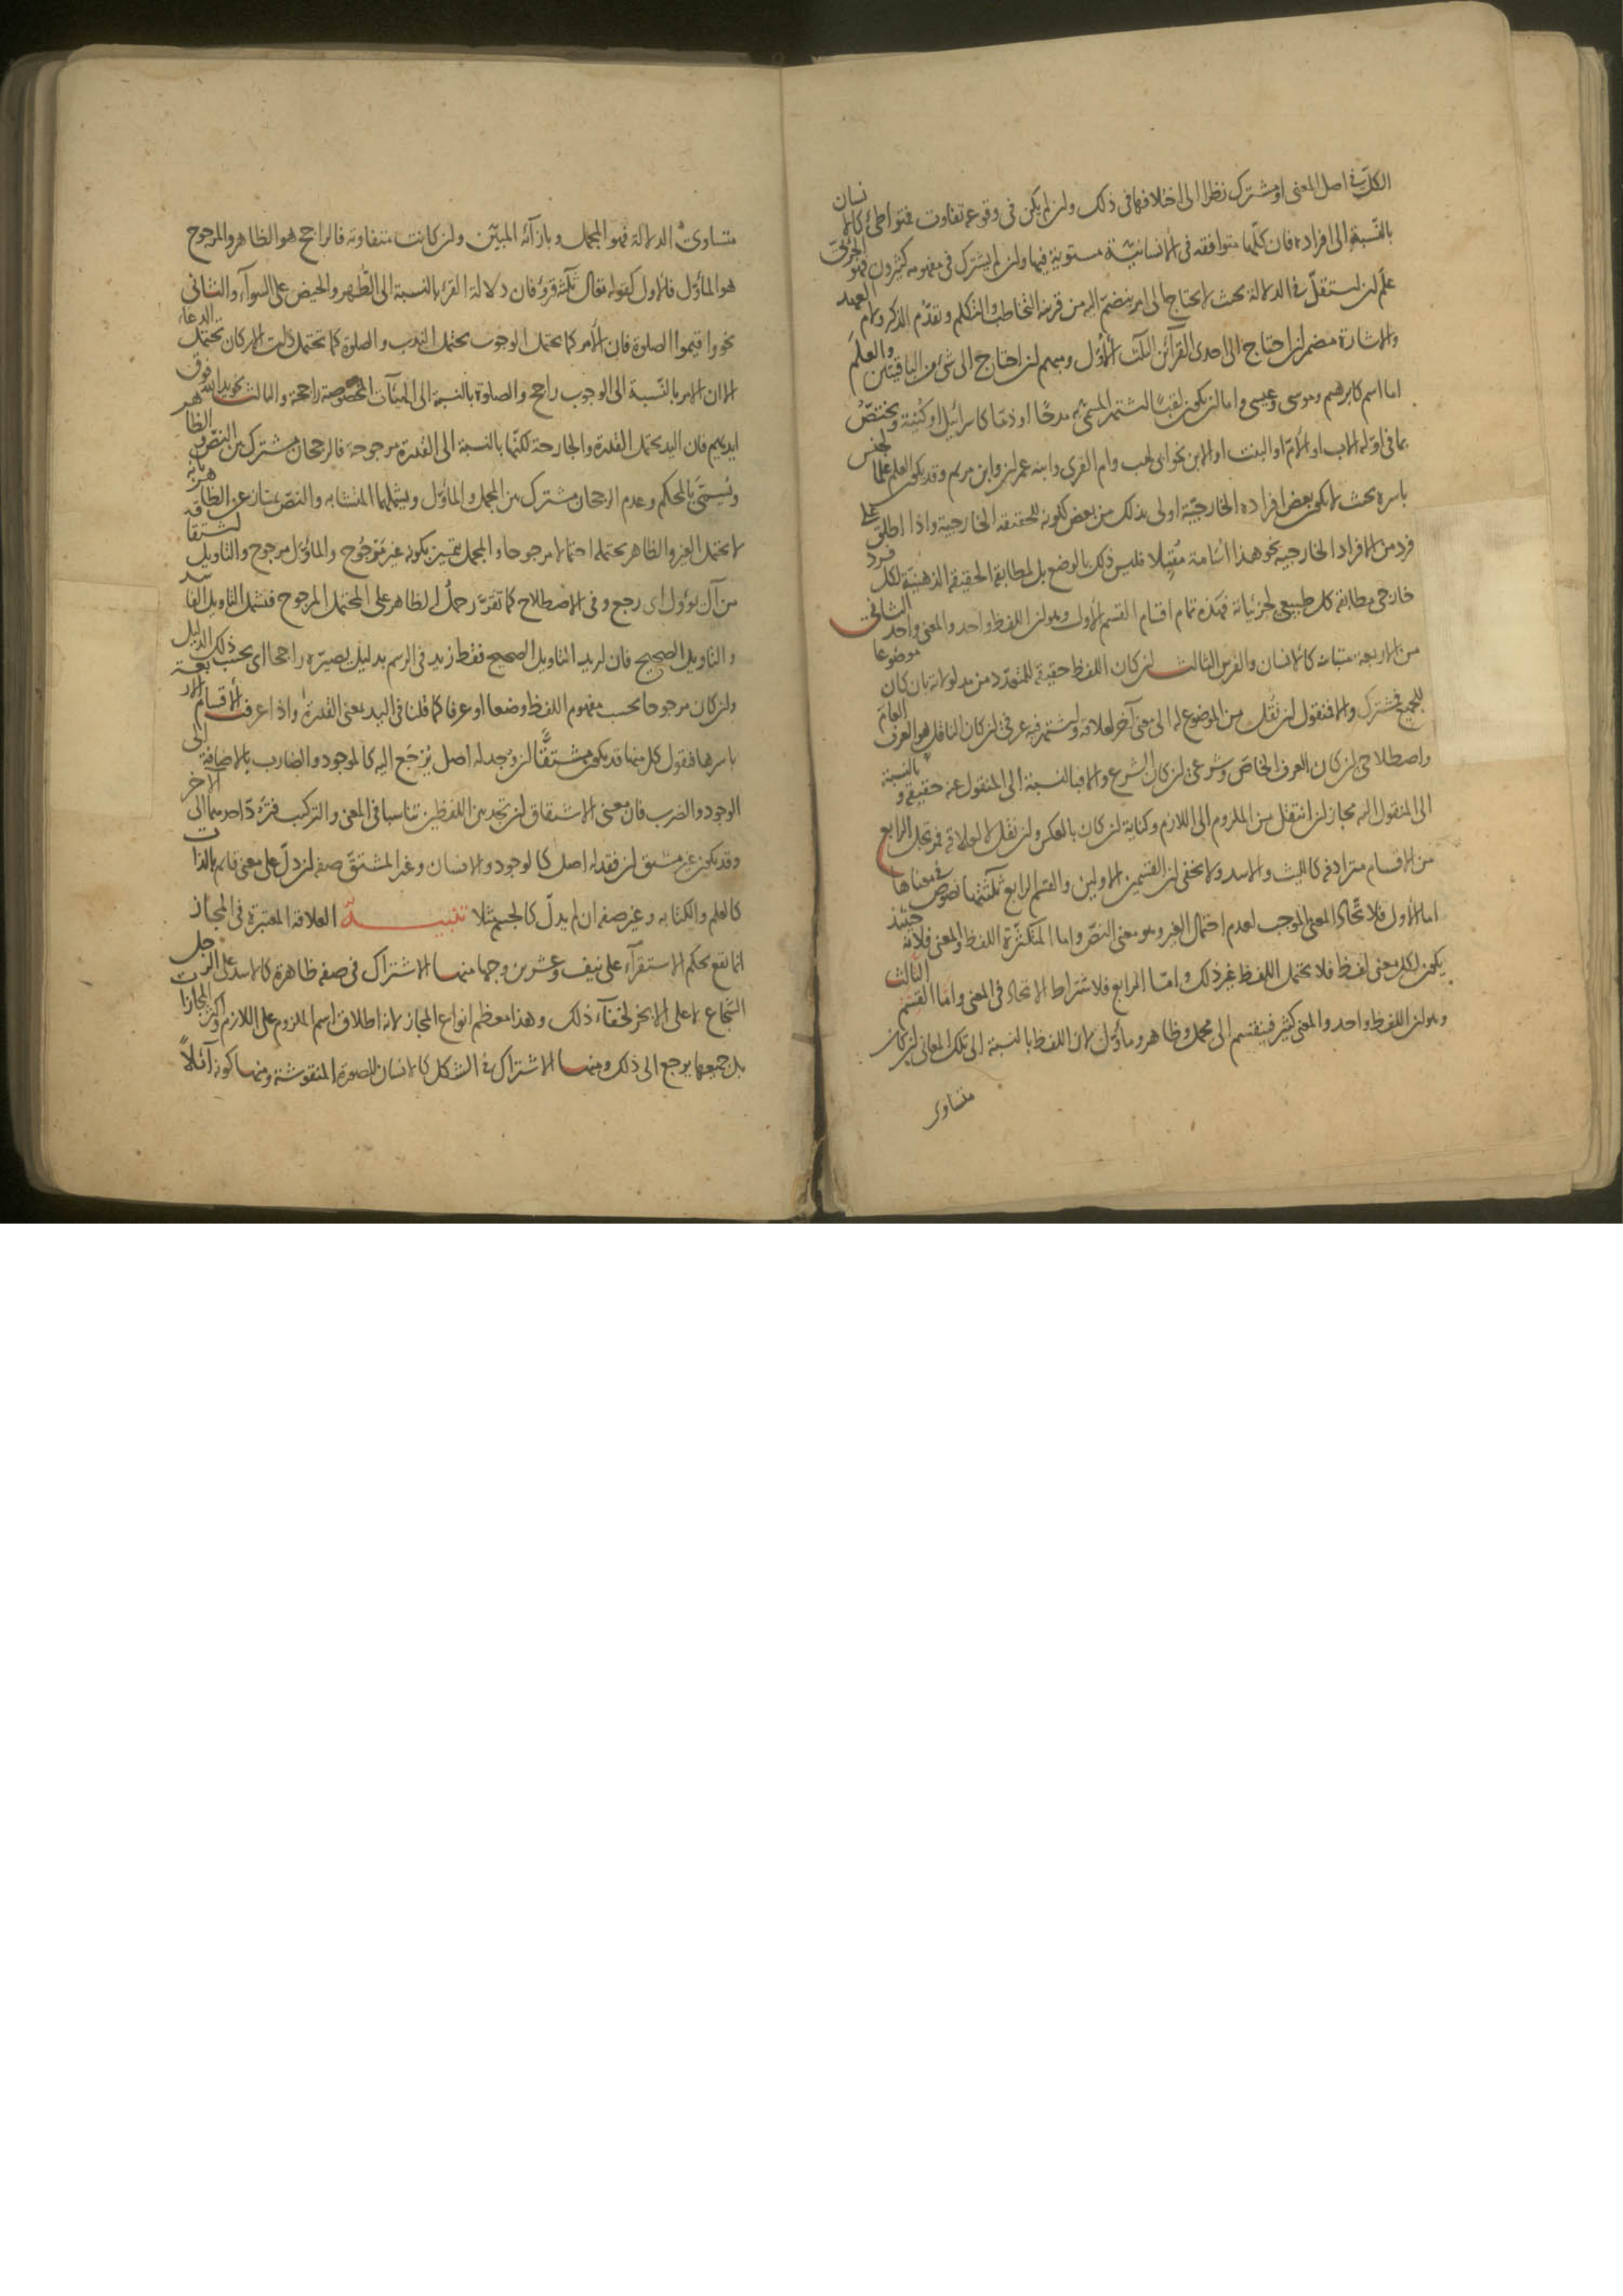 الكل فى اصل المعنى او مشترك نظرا الى اختلافها فى ذلك وان لم يكن فى وقوعه تفاوت فمتواطئ كالانسان
بالنسبة الى افراده فان كلها متوافقه فى الانسانية مستوية فيها وان لم يشترك فى مفهومه كثيرون فهو الجزئى
علم ان استقل فى الدلالة بحيث لا يحتاج الى امر ينضم اليه من قرينة التخاطب والتكلم وتقدم الذكر ولام العهد
والاشارة مضمر ان احتاج الى احدى القرائن الثلث الأول ومبهم ان احتاج الى شئ من الباقيتين والعلم
اما اسم كابرهيم وموسى وعيسى واما ان يكون لقبا ان اشتهر المسمى به مدحا او ذما كاسرائيل او كنية ويختص
بما فى اوله الاب او الأم او البنت او الابن نحو ابى لهب وام القرى وابنة عمران وابن مريم وقد يكون العلم علما لجنس
باسره بحيث لا يكون بعض افراده الخارجية اولى بذلك من بعض لكونه للحقيقه الخارجية واذا اطلق على
فرد من الافراد الخارجيه نحو هذا أسامة مقبلا فليس ذلك بالوضع بل لمطابقة الحقيقة الذهنية لكل فرد
خارجى مطابقة كل طبيعى لجزئياته فهذه تمام اقسام القسم الأول وهو ان اللفظ واحد والمعنى واحد الثانى
من الاربعة متباينات كالانسان والفرس الثالث ان كان اللفظ حقيقة للمتعدد من مدلولاته بان كان موضوعا
للجميع فمشترك والا فنقول ان نقل من الموضوع له الى معنى آخر لعلاقة واشتهر فيه عرفى ان كان الناقل هو العرف العام
واصطلاحى ان كان العرف الخاص وشرعى ان كان الشرع والا فبالنسبة الى المنقول عنه حقيقة وبالنسبة
الى المنقول اليه مجاز ان انتقل من الملزوم الى اللازم وكناية ان كان بالعكس وان نقل لا لعلاقة فمرتجل الرابع
من الاقسام مترادفة كالليث والاسد ولا يخفى ان القسمين الاولين والقسم الرابع ثلثتها نصوص فى معناها
اما الأول فلاتحاد المعنى الموجب لعدم احتمال الغير وهو معنى النص واما المتكثرة اللفظ والمعنى فلانه حينئذ
يكون لكل معنى لفظ فلا يحتمل اللفظ غير ذلك واما الرابع فلاشتراط الاتحاد فى المعنى واما القسم الثالث
وهو ان اللفظ واحد والمعنى كثير فينقسم الى مجمل وظاهر ومأول لان اللفظ بالنسبة الى تلك المعانى ان كان
متساوى
متساوى الدلالة فهو المجمل وبازائه المبين وان كانت متفاوته فالراجح هو الظاهر والمرجوح
هو المأول فالاول كقوله تعالى ثلثة قروء فان دلالة القرء بالنسبة الى الطهر والحيض على السوآء والثانى
نحو واقيموا الصلوة فان الأمر كما يحتمل الوجوب يحتمل الندب والصلوة كما تحتمل ذات الاركان تحتمل الدعاء
الا ان الامر بالنسبة الى الوجوب راجح والصلوة بالنسبة الى الهيئات المخصوصة راجحة والثالث نحو يد الله فوق
ايديهم فان اليد يحتمل القدرة والجارحة لكنها بالنسبة الى القدرة مرجوحة فالرجحان مشترك بين النص والظاهر
ويسمى بالمحكم وعدم الرجحان مشترك بين المجمل والمأول ويشملهما المتشابه والنص يمتاز عن الظاهر بانه
لا يحتمل الغير والظاهر يحتمله احتمالا مرجوحا والمجمل يتميز بكونه غير مرجوح والمأول مرجوح والتاويل اشتقاقه
من آل يؤول اى رجع وفى الاصطلاح كما تقرر حمل الظاهر على المحتمل المرجوح فيشمل التاويل الفاسد
والتاويل الصحيح فان اريد التاويل الصحيح فقط زيد فى الرسم بدليل يصيره راجحا اى بحسب ذلك الدليل
وان كان مرجوحا بحسب مفهوم اللفظ وضعا او عرفا كما قلنا فى اليد بمعنى القدرة واذا عرفت الأقسام الاربعة
باسرها فنقول كل منها قد يكون مشتقا ان وجد له اصل يرجع اليه كالموجود والضارب بالاضافة الى
الوجود والضرب فان معنى الاشتقاق ان تجد بين اللفظين تناسبا فى المعنى والتركيب فترد احدهما الى الآخر
وقد يكون غير مشتق ان فقد له اصل كالوجود والانسان وغير المشتق صفه ان دل على معنى قائم بالذات
كالعلم والكتابه وغير صفه ان لم يدل كالجسم مثلا تنبيه العلاقة المعتبرة فى المجاز
انما تقع بحكم الاستقرآء على نيف وعشرين وجها منها الاشتراك فى صفه ظاهرة كالاسد على الرجل
الشجاع لا على الابخر لخفاء ذلك وهذا معظم انواع المجاز لانه اطلاق اسم الملزوم على اللازم واكثر المجازات
بل جميعها يرجع الى ذلك ومنها الاشتراك فى الشكل كالانسان للصورة المنقوشة ومنها كونه آئلا